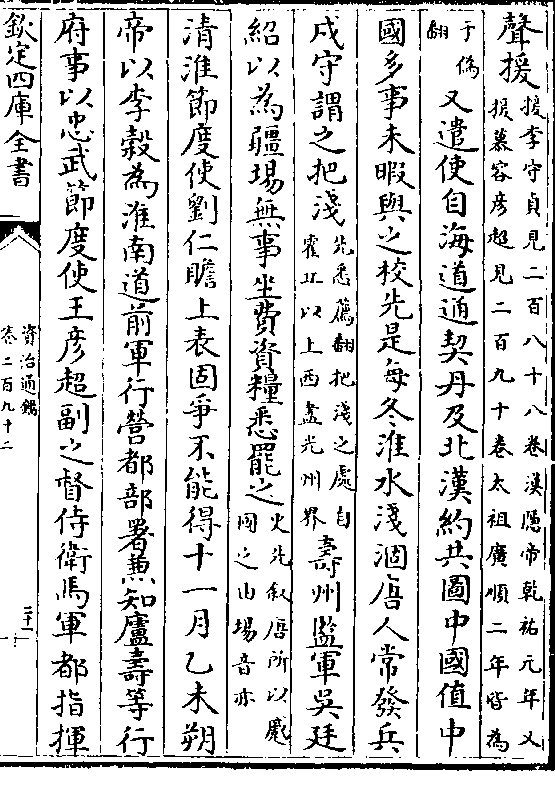 聲援援李守貞見二百八十八卷漢隠帝乾祐元年又
援慕容彦超見二百九十卷太祖廣順二年皆為
于偽
翻又遣使自海道通契丹及北漢約共圖中國值中
國多事未暇與之校先是每冬淮水淺涸唐人常發兵
戍守謂之把淺先悉薦翻把淺之處自
霍丘以上西盡光州界壽州監軍吳廷
紹以為疆埸無事坐費資糧悉罷之史先叙唐所以蹙
國之由埸音亦
清淮節度使劉仁贍上表固爭不能得十一月乙未朔
帝以李榖為淮南道前軍行營都部署兼知廬壽等行
府事以忠武節度使王彦超副之督侍衛馬軍都指揮
欽定四庫全書
資治通鑑
卷二百九十二